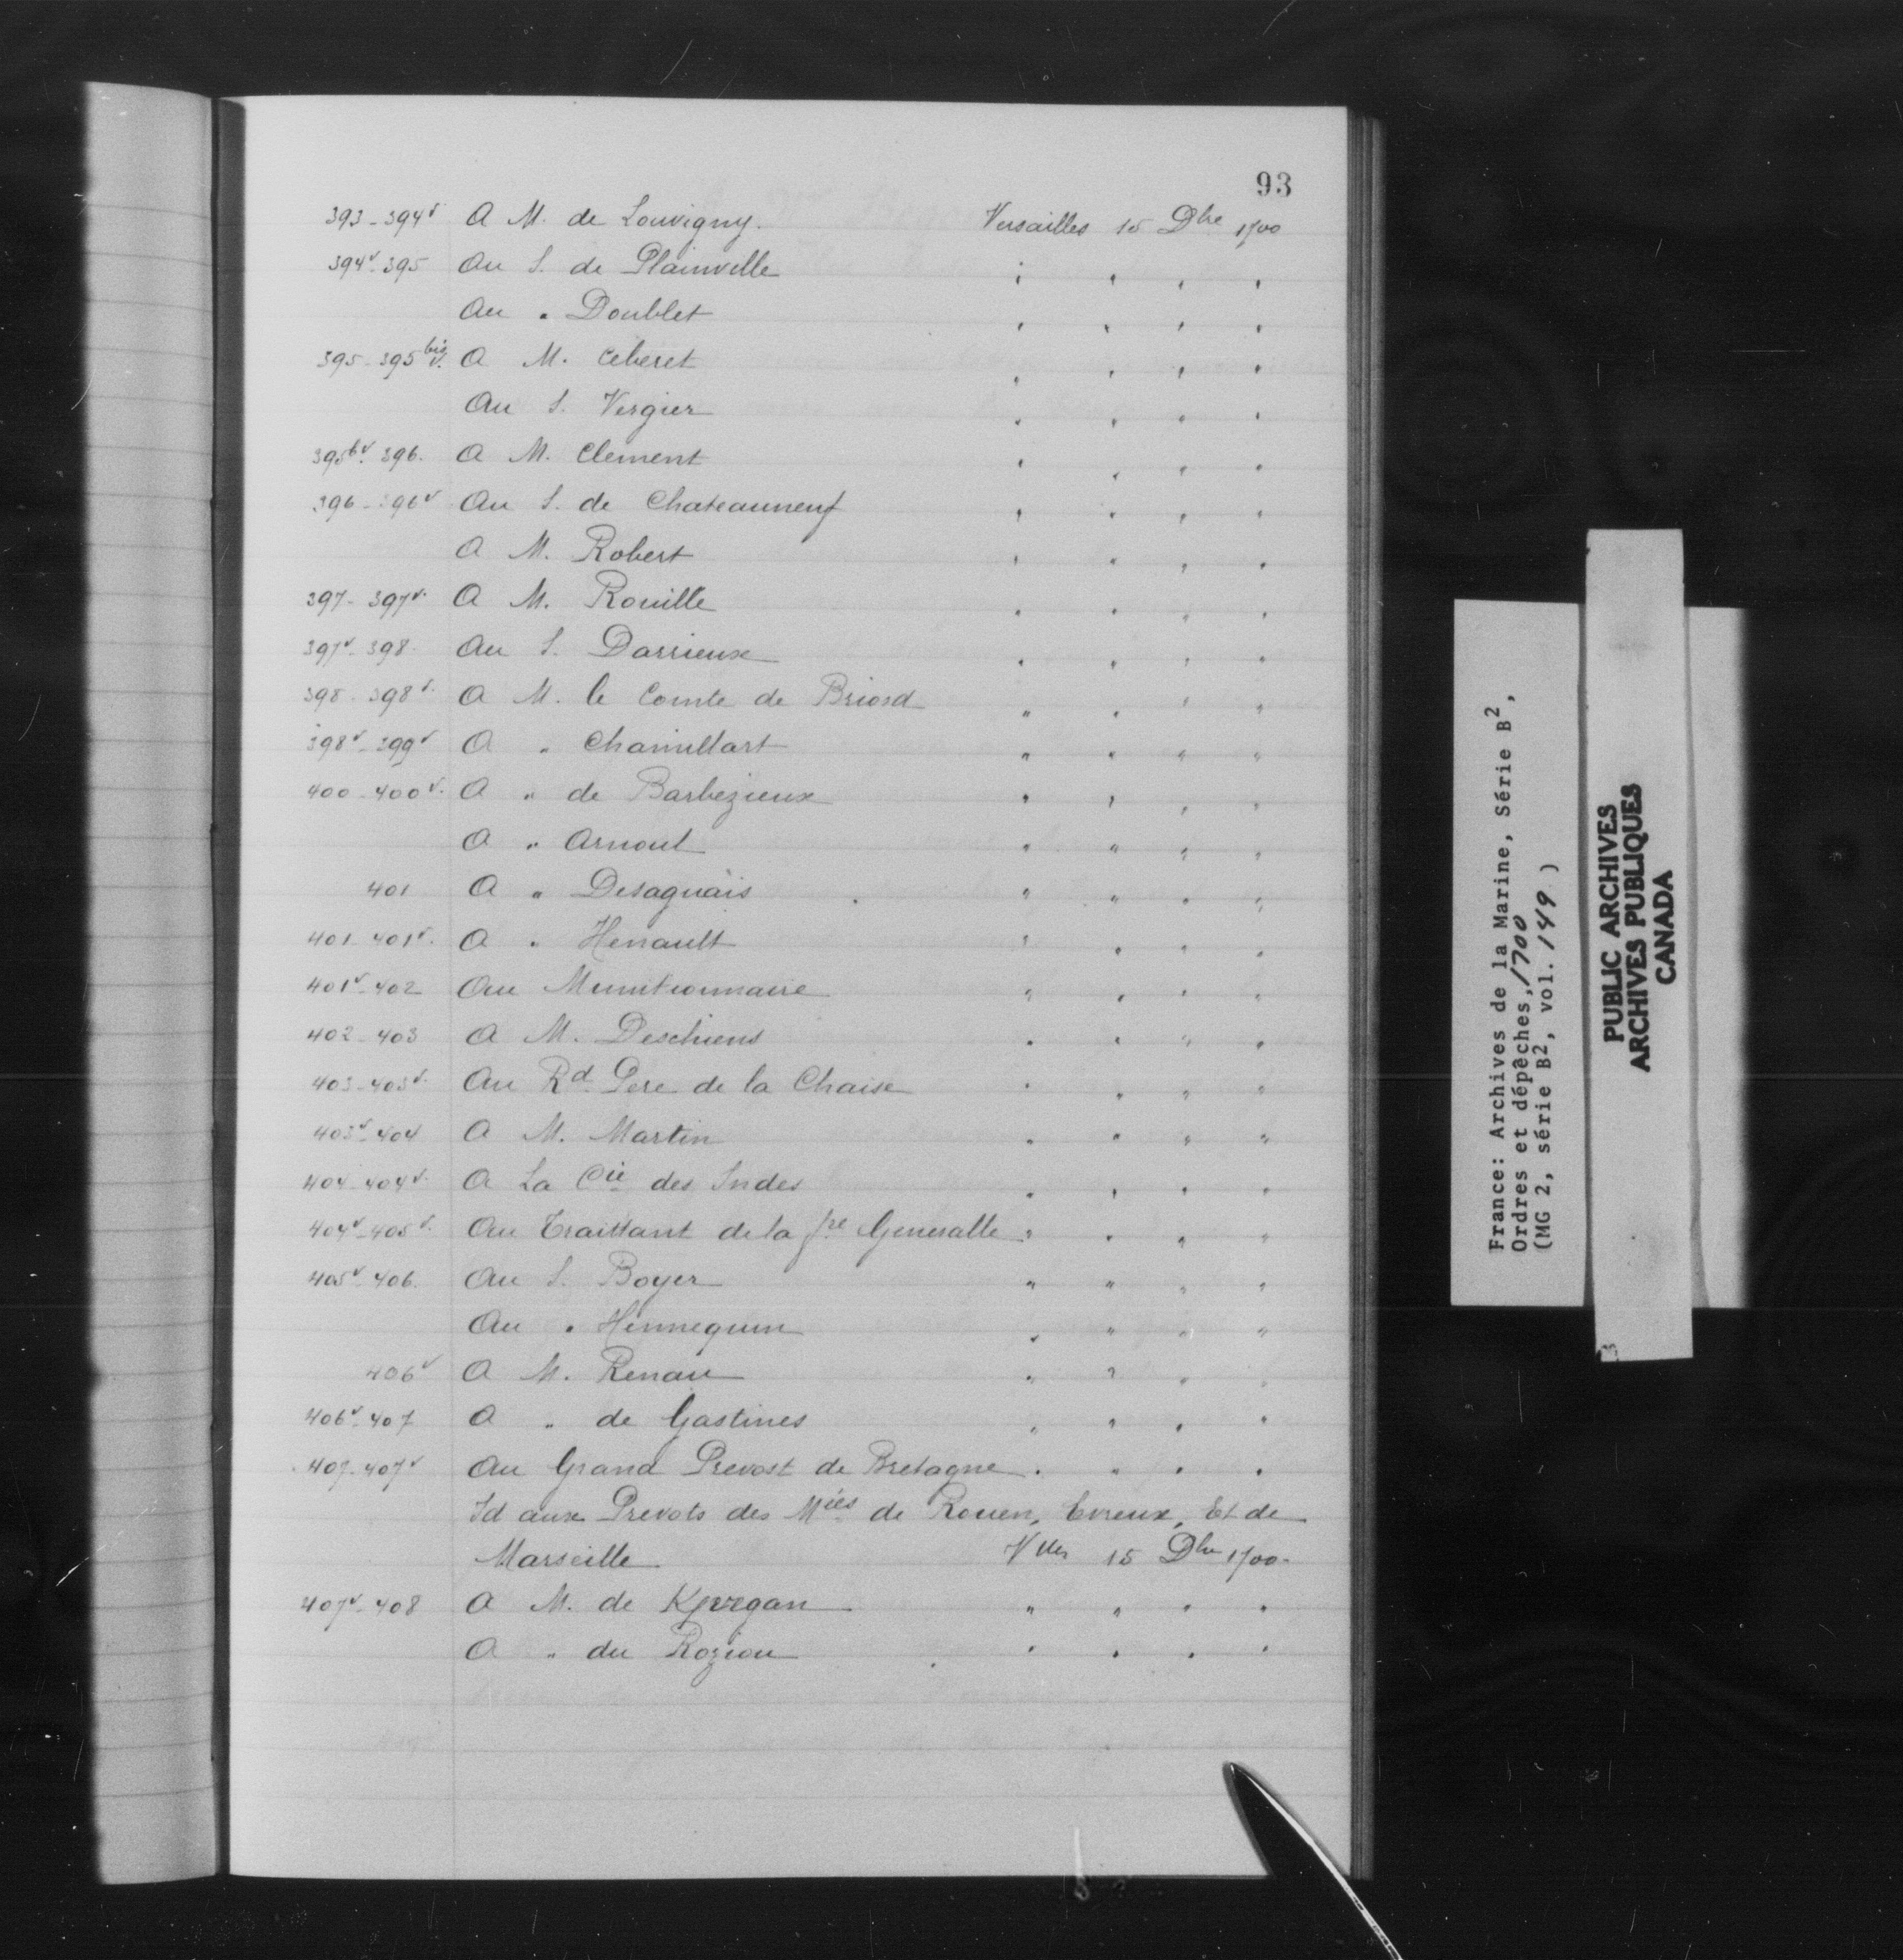 93
393-394v A M. de Louvigny. Versailles 15 Dbre 1700
394v-395 Au S. de Plainville " " " "
Au " Doublet " " " "
395-395 bis v. A M. Ceberet " " " "
Au S. Vergier " " " "
395bv. 396. A M. Clement " " " "
396-396v Au S. de Chateauneuf " " " "
A M. Robert " " " "
397-397v. A M. Rouille " " " "
397v-398. Au S. Darrieux " " " "
398-398v. A M. le Comte de Briord " " " "
398v-399v A " Chamillart " " " "
400-400v. A " de Barbezieux " " " "
A " Arnoul " " " "
401 A " Desaguais " " " "
401-401v. A " Henault " " " "
401v-402 Au Munitionnaire " " " "
402-403 A M. Deschiens " " " "
403-403v. Au Rd Pere de la Chaise " " " "
403v-404 A M. Martin " " " "
404-404v. A La Cie des Indes " " " "
404v-405v. Au Traittant de la fre Generalle " " " "
405v-406. Au S. Boyer " " " "
Au " Hennequin " " " "
406v A M. Renau " " " "
406v-407 A " de Gastines " " " "
407-407v Au Grand Prevost de Bretagne " " " "
Id aux Prevots des Mées de Rouen, Evreux, Et de
Marseille Vlles 15 Dbre 1700.
407v-408 A M. de " " " "
A " du " " " "
France: Archives de la Marine, Série B2,
Ordres et dépêches, 1700
(MG 2, série B2, vol. 149 )
PUBLIC ARCHIVES
ARCHIVES PUBLIQUES
CANADA